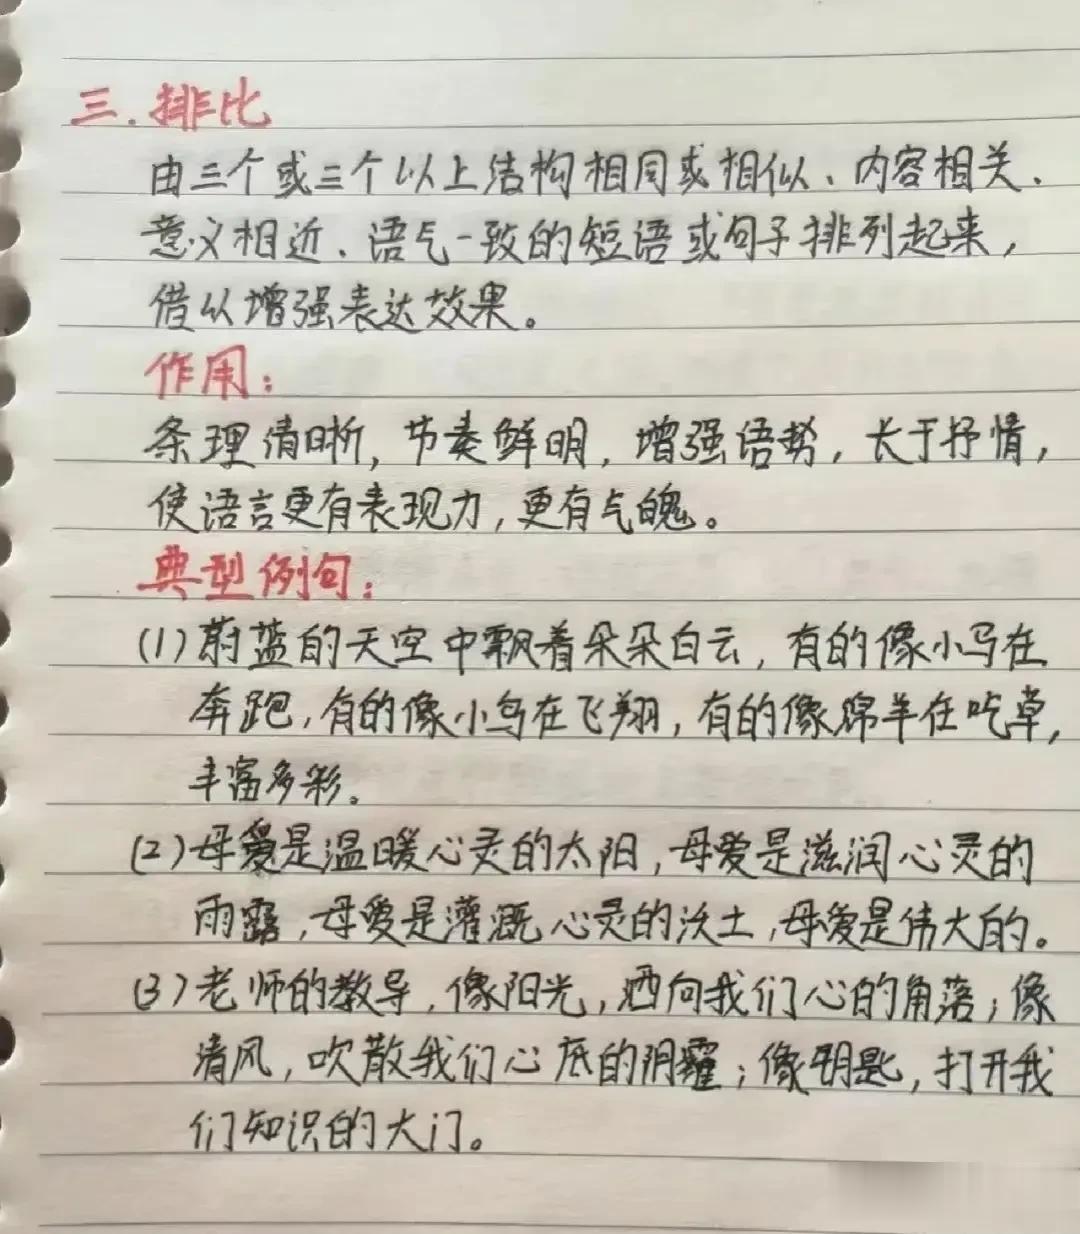 三.排比
由三个或三个以上结构相同或相似、内容相关、
意义相近、语气一致的短语或句子排列起来，
借以增强表达效果。
作用：
条理清晰，节奏鲜明，增强语势，长于抒情，
使语言更有表现力，更有气魄。
典型例句：
(1)蔚蓝的天空中飘着朵朵白云，有的像小马在
奔跑，有的像小鸟在飞翔，有的像绵羊在吃草，
丰富多彩。
(2)母爱是温暖心灵的太阳，母爱是滋润心灵的
雨露，母爱是灌溉心灵的沃土，母爱是伟大的。
(3)老师的教导，像阳光，洒向我们心的角落；像
清风，吹散我们心底的阴霾；像钥匙，打开我
们知识的大门。